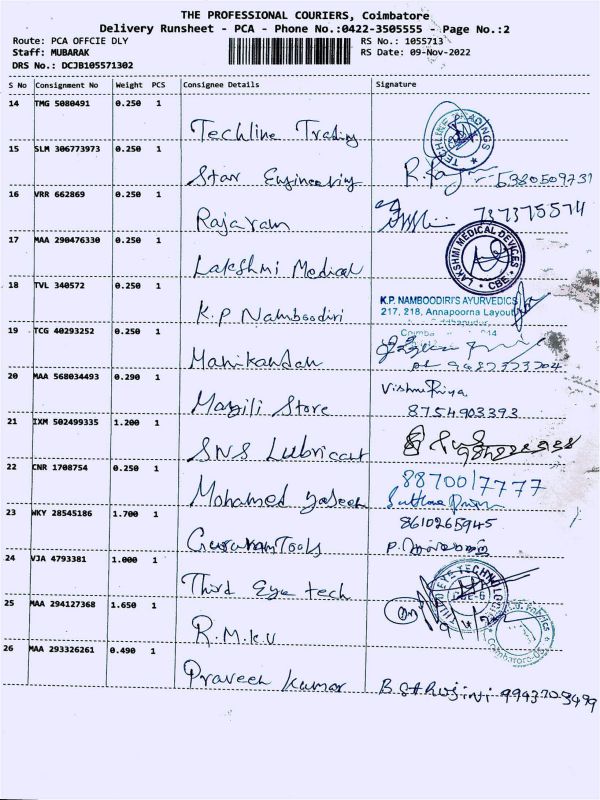 THE PROFESSIONAL COURIERS, Coimbatore
Delivery Runsheet - PCA - Phone No.:0422-3505555 - Page No.:2
Route: PCA OFFCIE DLY
RS No.: 1055713
Staff: MUBARAK
RS Date: 09-Nov-2022
DRS No.: DCJB105571302
S No Consignment No Weight PCS Consignee Details Signature
14 TMG 5080491 0.250 1
Techline Trading
15 SLM 306773973 0.250 1
Star Engineering
16 VRR 662869 0.250 1
Rajaram 737375574
17 MAA 290476330 0.250 1
Lakshmi Medical
LAKSHMI MEDICAL DEVICES
CBE
18 TVL 340572 0.250 1
K.P Namboodiri
K.P. NAMBOODIRI'S AYURVEDICS
217, 218, Annapoorna Layout
19 TCG 40293252 0.250 1
Manikandan
20 MAA 568034493 0.290 1
Vishnu Priya
Mayili Store 8754903393
21 IXM 502499335 1.200 1
SNS Lubricant
22 CNR 1708754 0.250 1
8870017777
Mohamed Yaseen
23 WKY 28545186 1.700 1
8610265945
Gururam Tools
24 VJA 4793381 1.000 1
Third Eye tech
25 MAA 294127368 1.650 1
R.M.K.V
26 MAA 293326261 0.490 1
Praveen Kumar B. 9943709499